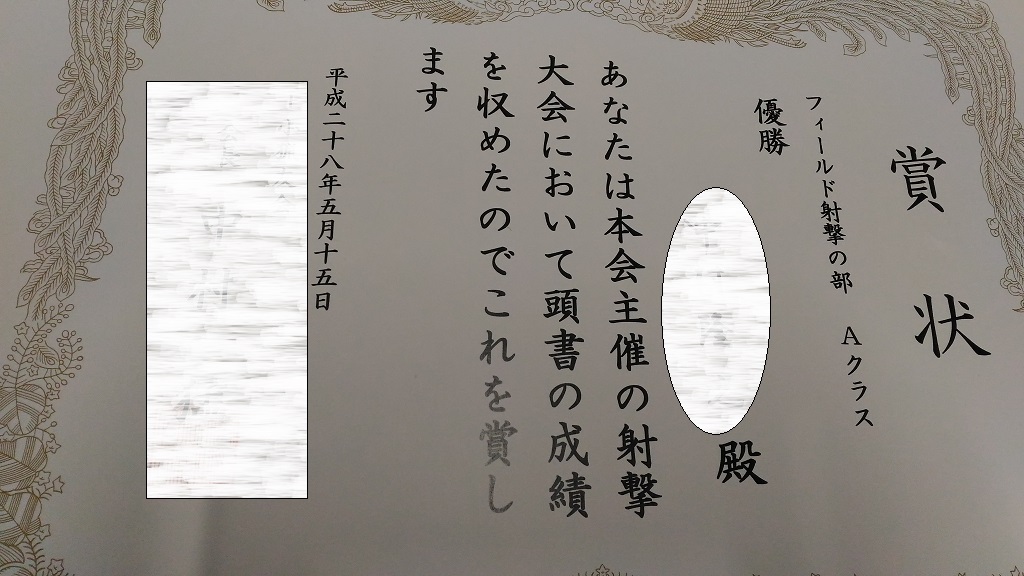 賞状
フィールド射撃の部 Aクラス
優勝
殿
あなたは本会主催の射撃
大会において頭書の成績
を収めたのでこれを賞し
ます
平成二十八年五月十五日